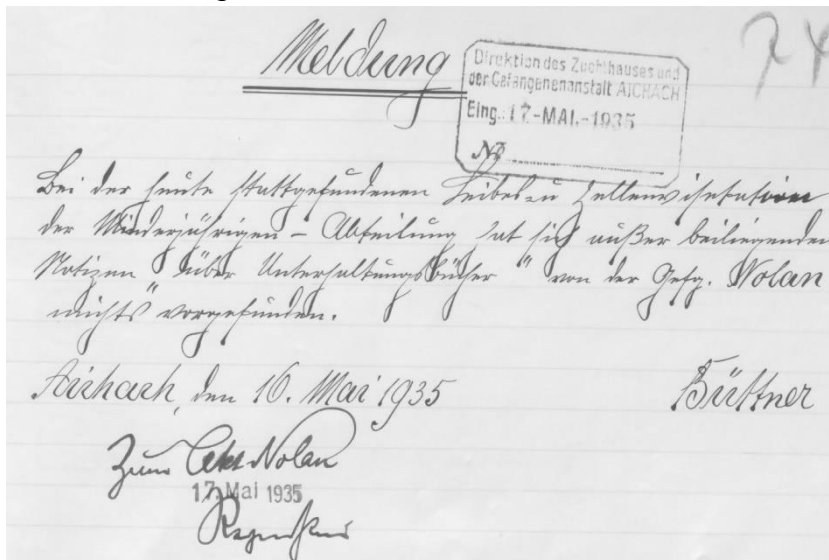 Meldung
74
Direktion des Zuchthauses und
der Gefangenenanstalt AICHACH
Eing.: 17.-MAI.-1935
No
Bei der heute stattgefundenen Leibes u Zellenvisitation
der Minderjährigen - Abteilung hat sich außer beiliegenden
Notizen "über Unterhaltungsbücher" von der Gefg. Nolan
nichts vorgefunden.
Aichach, den 16. Mai 1935 Büttner
Zum Akt Nolan
17. Mai 1935